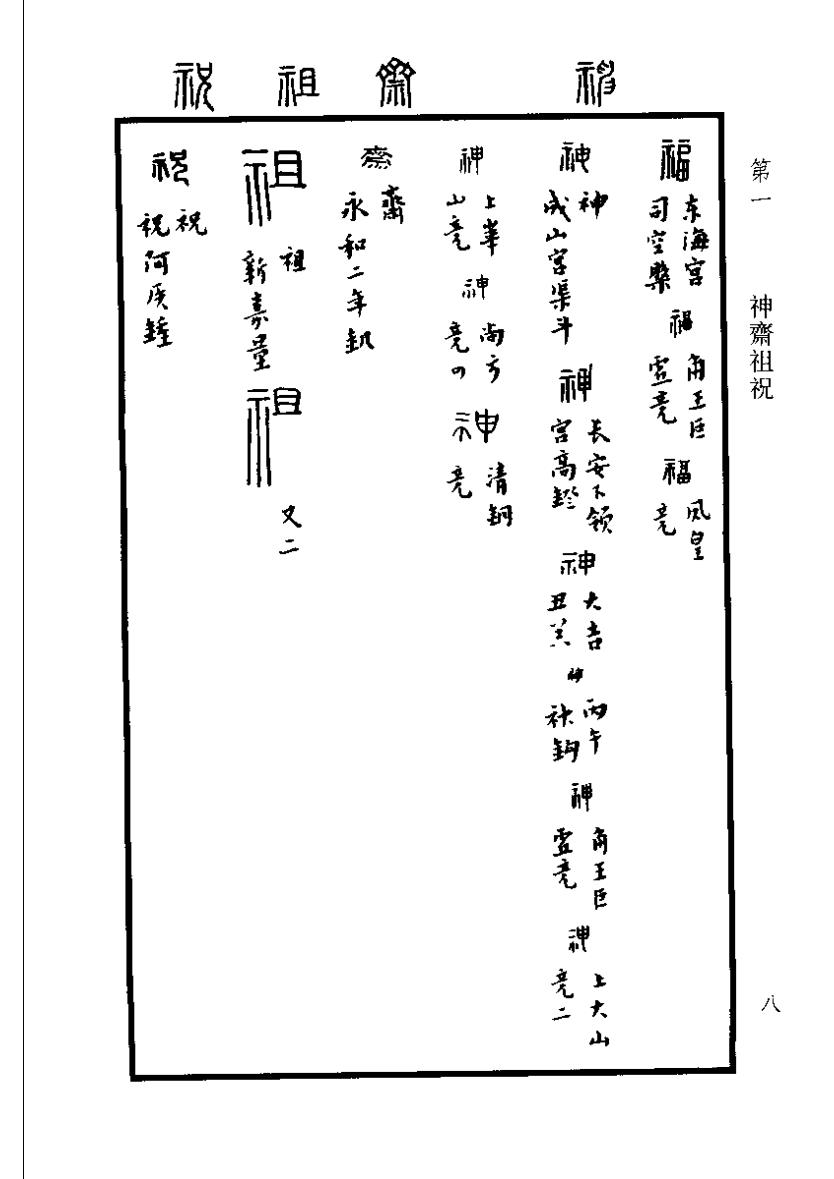 第一 神齋祖祝 八
神 齋 祖 祝
福 东海宫司空槃 福 角王巨虚竟 福 凤皇竟
神 神 成山宫渠斗 神 長安下领宫高鐙 神 大吉丑 神 丙午鉤 神 角王巨虚竟 神 上大山竟二
神 上華山竟 神 尚方竟四 神 清銅竟
齋 齋 永和二年
祖 祖 新嘉量 祖 又二
祝 祝 祝阿矦鍾